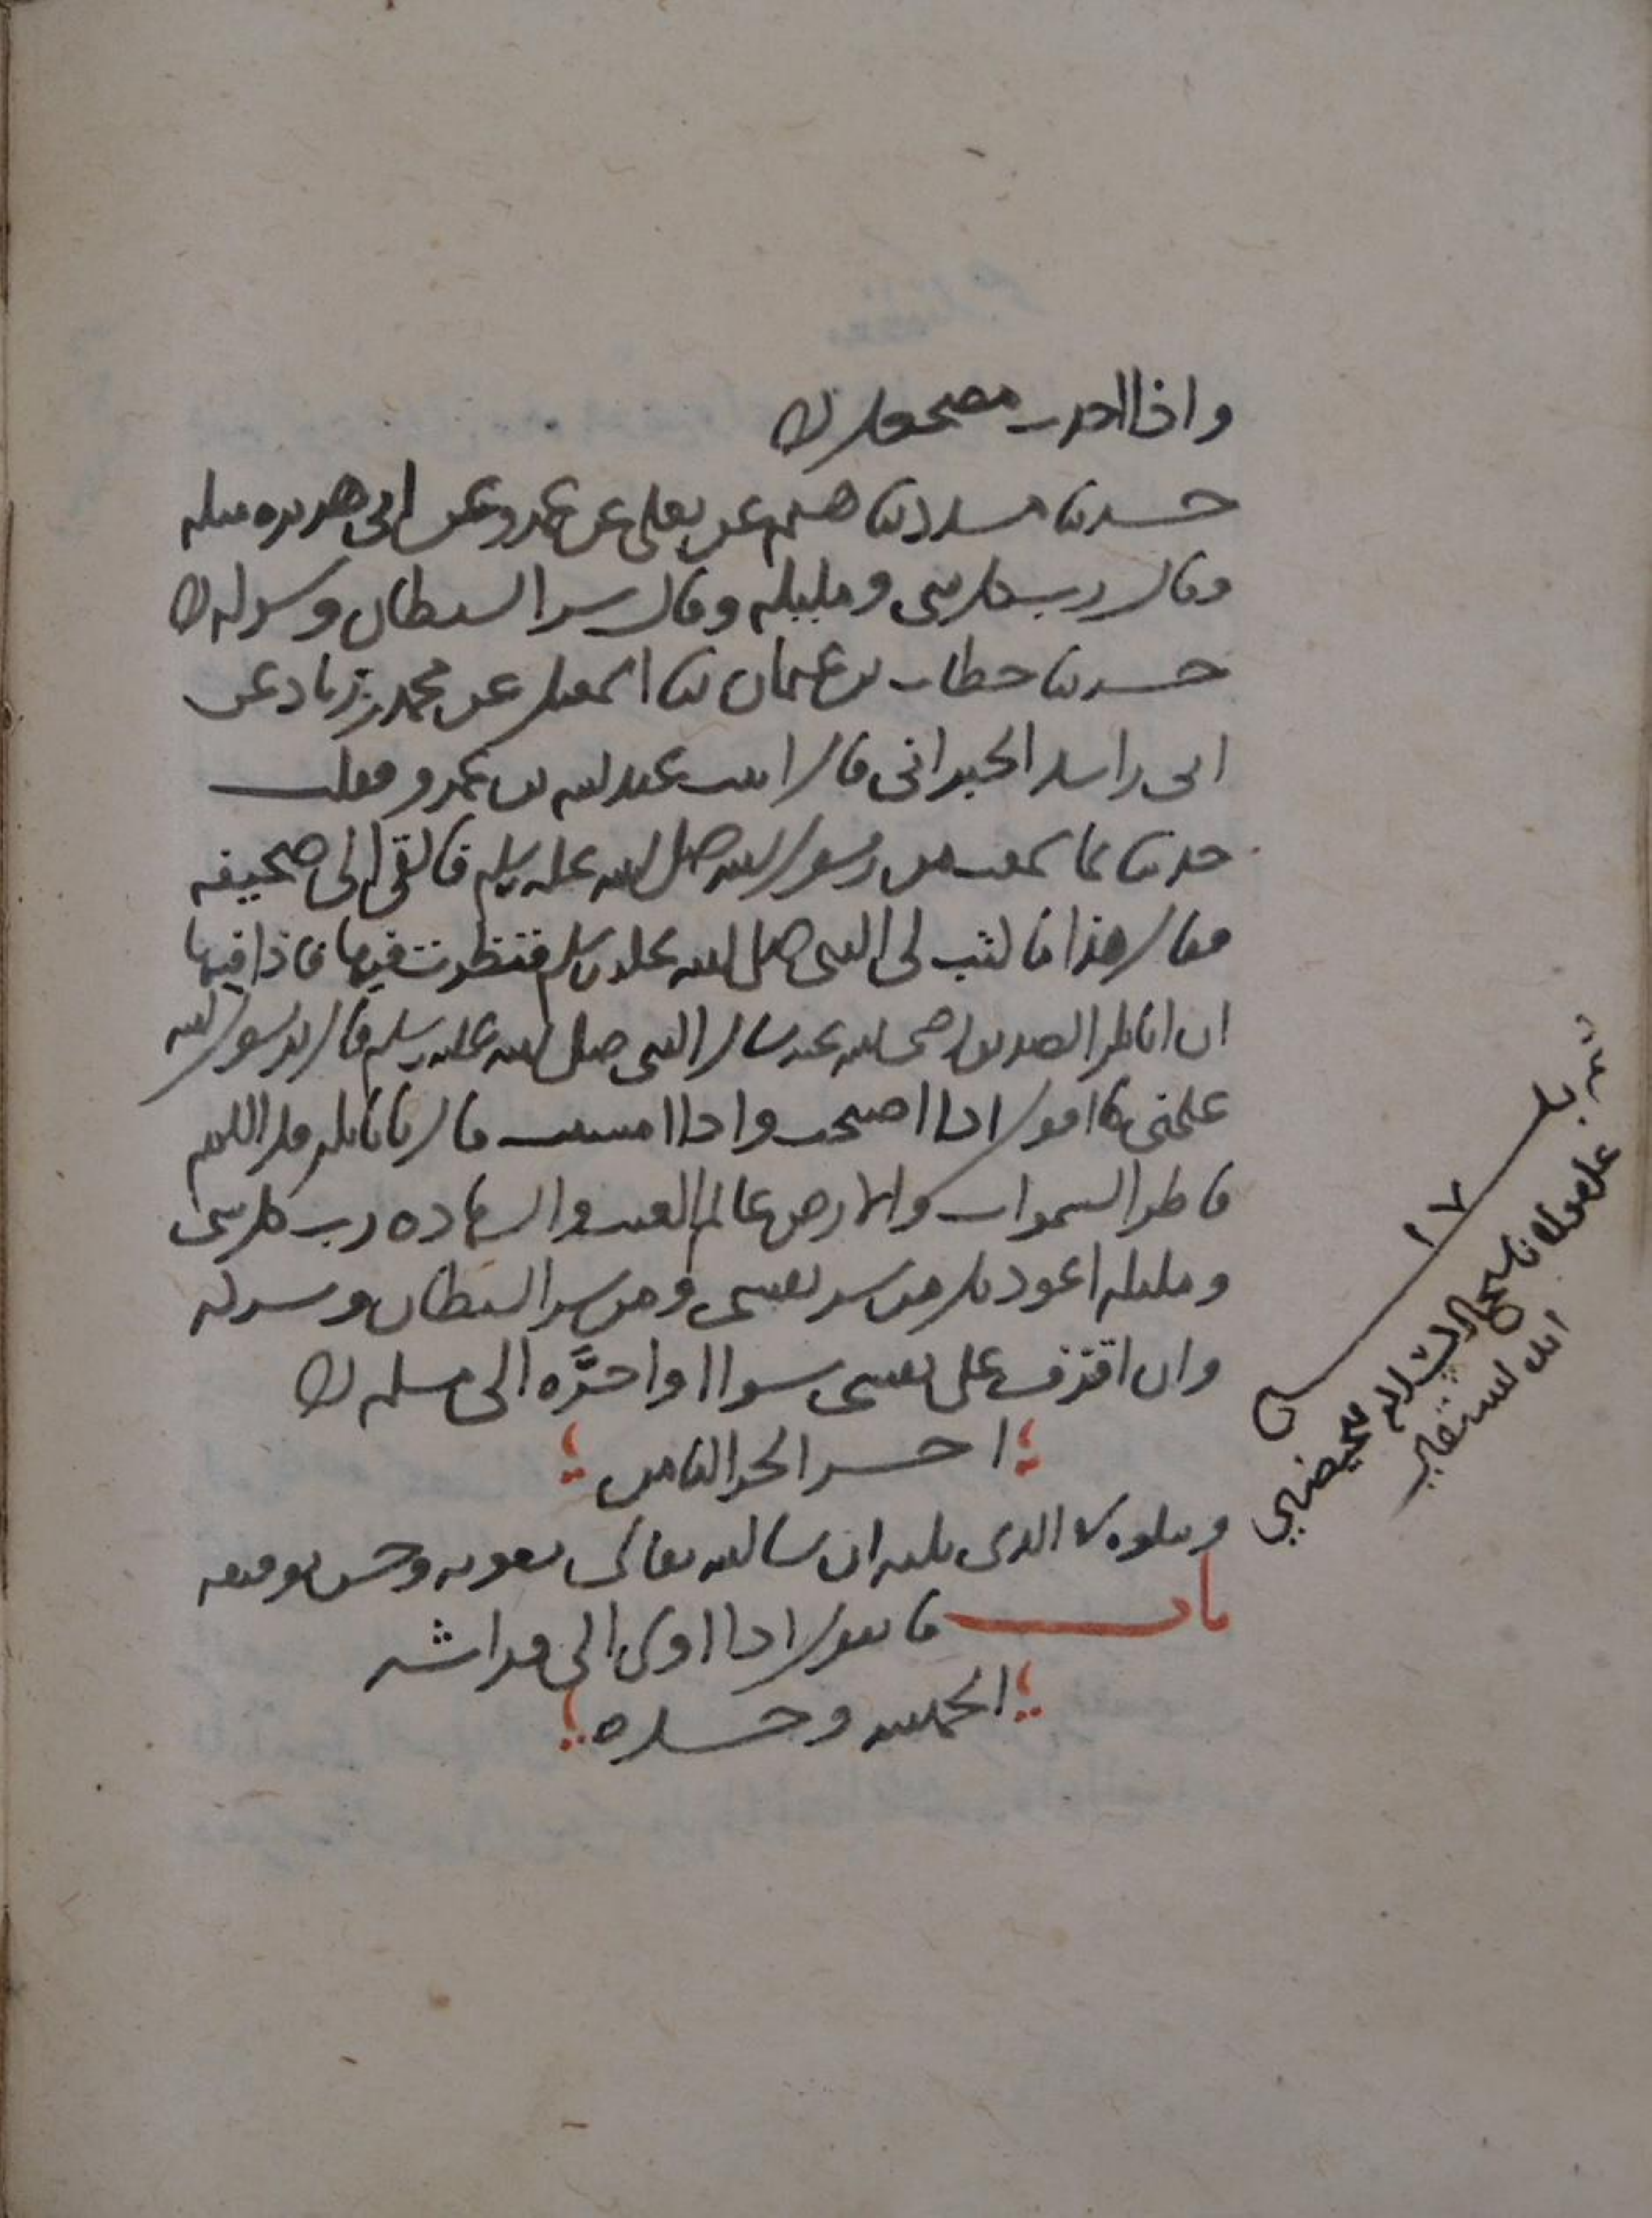 واذا اخذت مضجعك
حدثنا مسدد ثنا هشيم عن يعلى عن عمرو عن ابي هريره مثله
وقال رب كل شي ومليكه وقال شر الشيطان وشركه
حدثنا خطاب بن عثمان ثنا اسمعيل عن محمد بن زياد عن
ابي راشد الحبراني قال اتيت عبد الله بن عمرو فقلت
حدثنا بما سمعت من رسول الله صلى الله عليه وسلم فالقى الى صحيفه
فقال هذا ما كتب لي النبي صلى الله عليه وسلم فنظرت فيها فاذا فيها
ان ابا بكر الصديق رضي الله عنه سال النبي صلى الله عليه وسلم قال يرسول الله
علمني ما اقول اذا اصبحت واذا امسيت قال يا ابا بكر قل اللهم
فاطر السموات والارض عالم الغيب والشهاده رب كل شي
ومليكه اعوذ بك من شر نفسي ومن شر الشيطان وشركه
وان اقترف على نفسي سوا او اجره الى مسلم
اخر الجز الثامن
ويتلوه الذي يليه ان شا الله تعالى بعونه وحسن توفيقه
باب ما يقول اذا اوى الى فراشه
الحمد لله وحده
بلـــغ
١٧